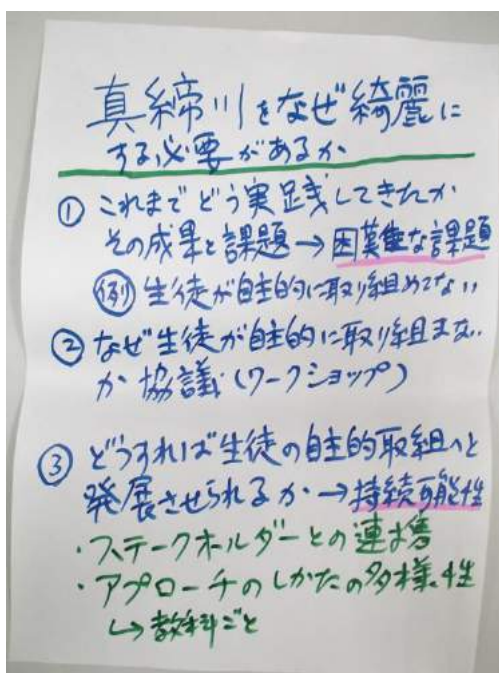 真締川をなぜ綺麗に
する必要があるか
① これまでどう実践してきたか
その成果と課題→困難な課題
例 生徒が自主的に取り組めてない
② なぜ生徒が自主的に取り組まない
か 協議(ワークショップ)
③ どうすれば生徒の自主的取組へと
発展させられるか→持続可能性
・ステークホルダーとの連携
・アプローチのしかたの多様性
↳教科ごと